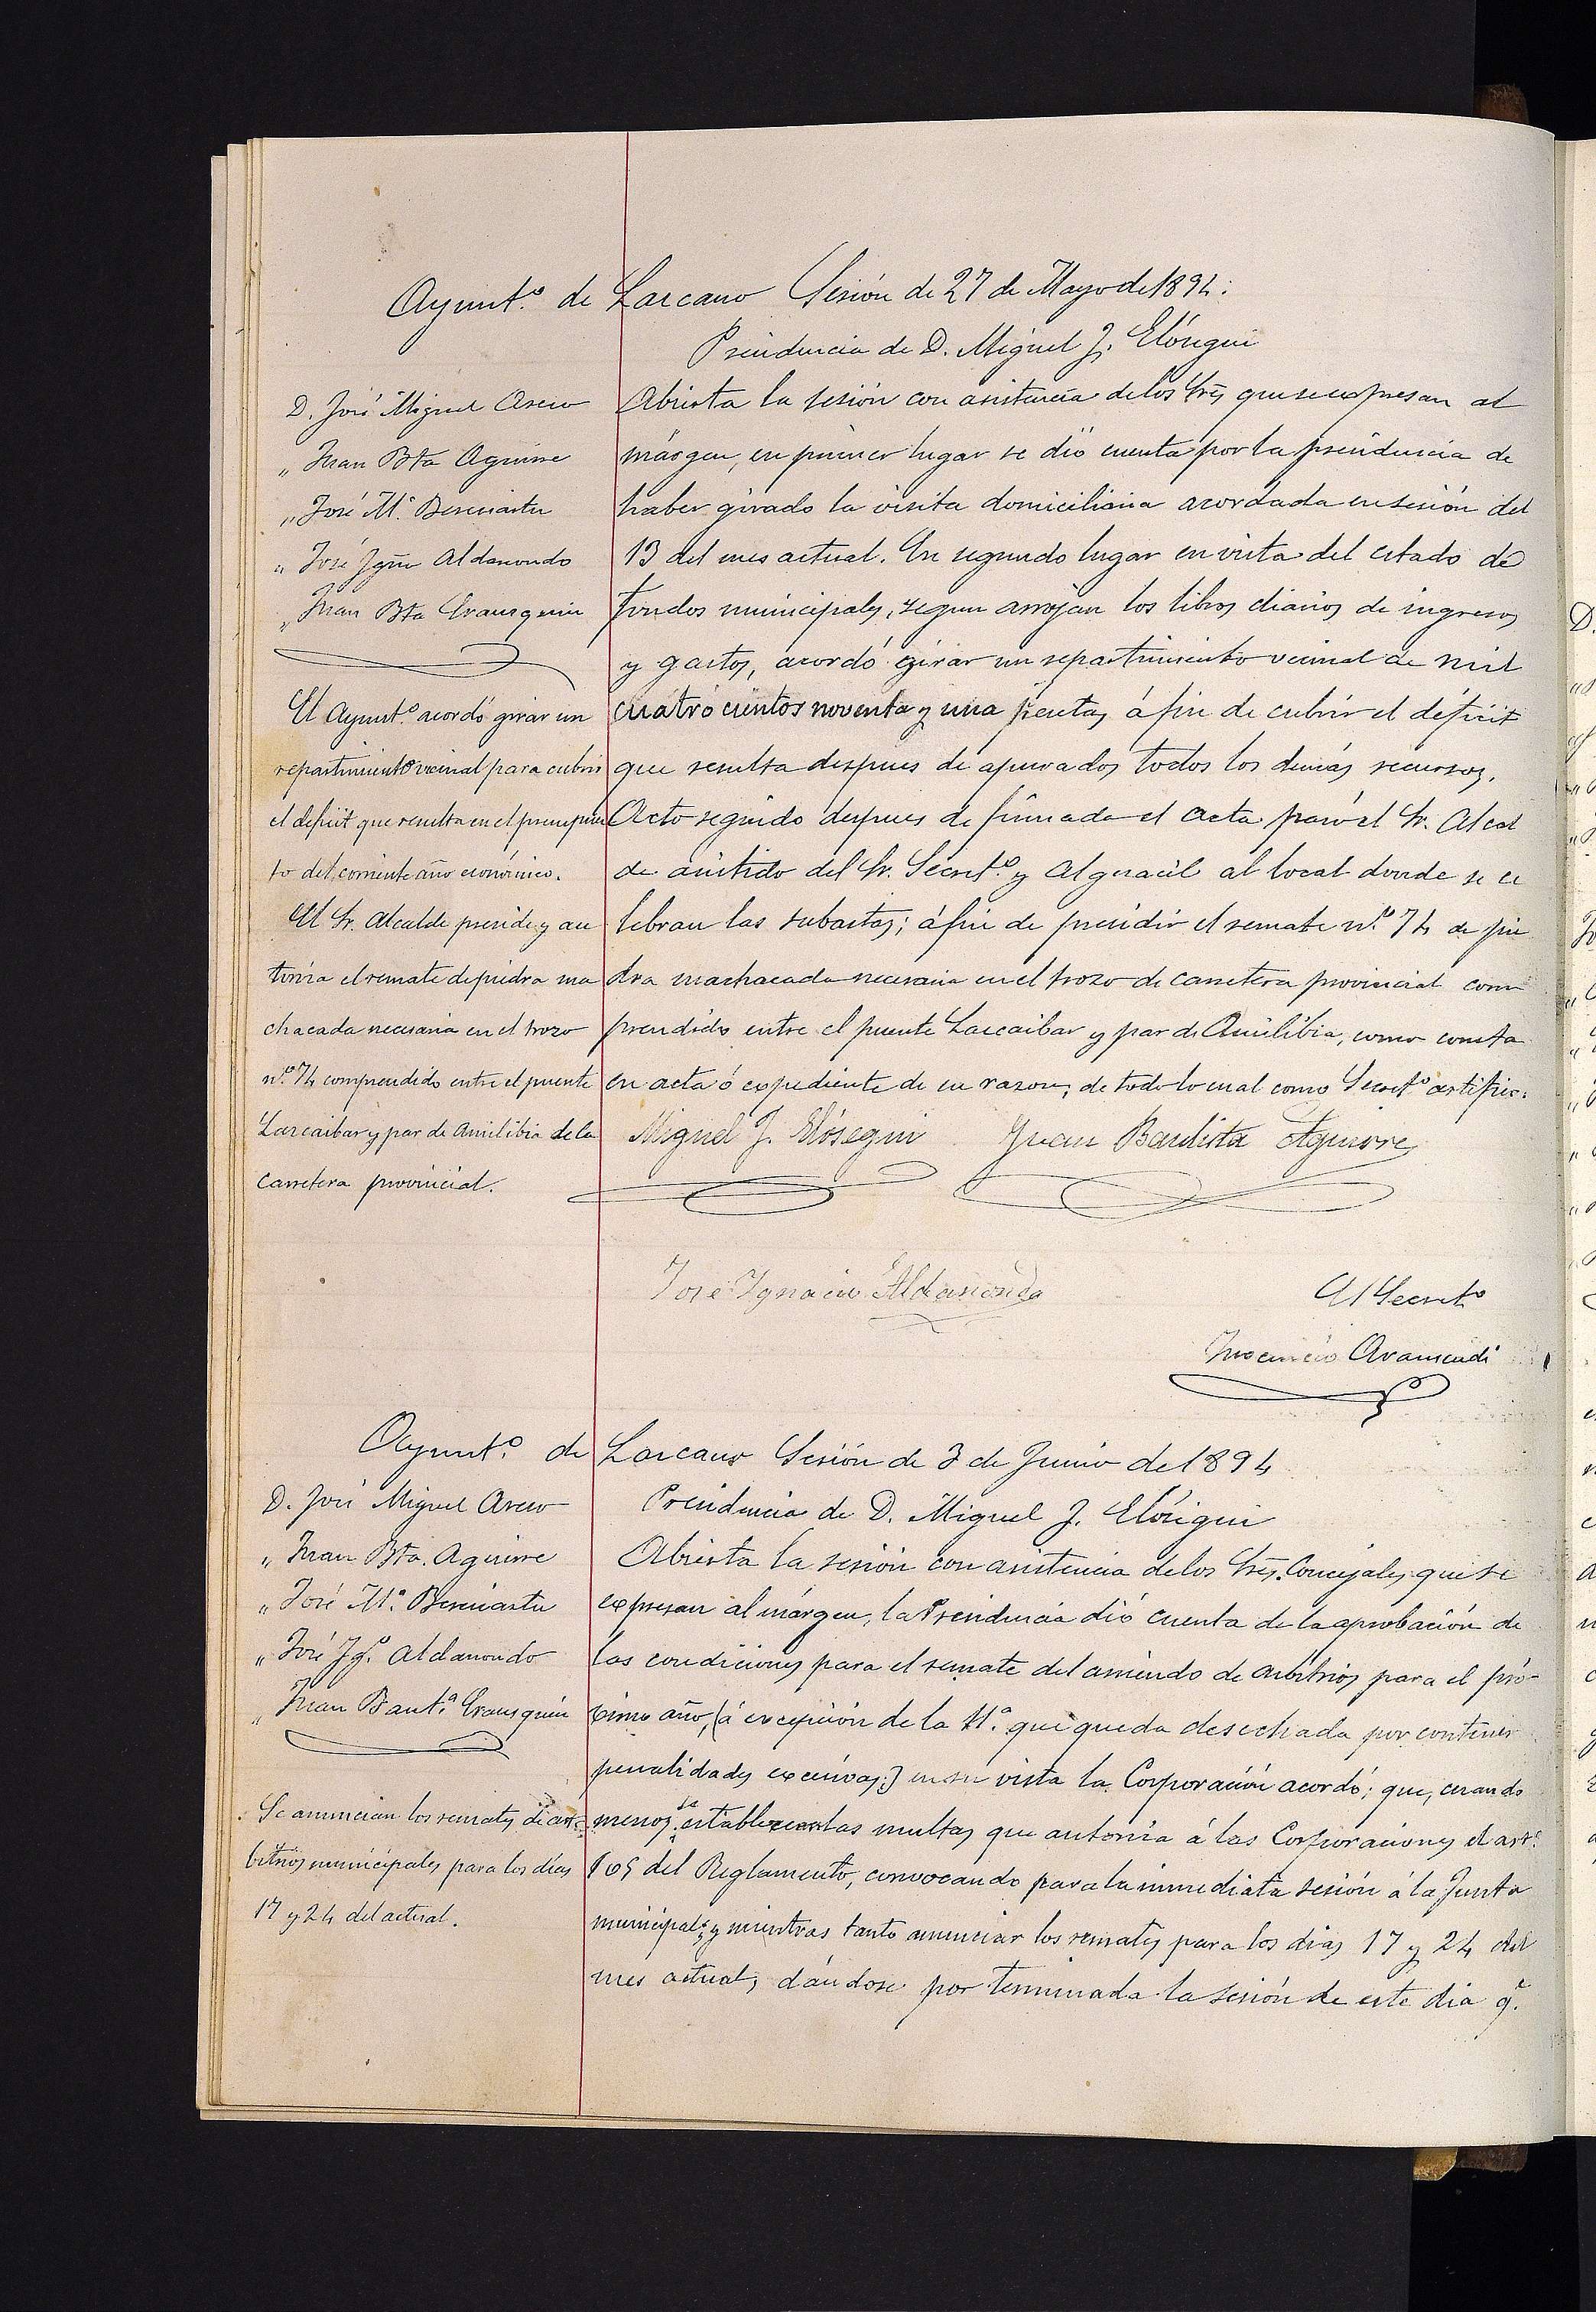 Ayunt.º de Lazcano Sesión de 27 de Mayo de 1894:
Presidencia de D. Miguel J. Elósegui
D. José Miguel Aseno
„ Juan Bta Aguirre
„ José M.ª Beruiartu
„ José Ign Aldanondo
„ Juan Bta Yrausquin
El Ayunt.º acordó girar un
repartimiento vecinal para cubrir
el deficit que resulta en el presupues
to del corriente año económico.
El Sr. Alcalde preside y au
toriza el remate de piedra ma
chacada necesaria en el trozo
n.º 74 comprendido entre el puente
Lazcaibar y par de Amilibia de la
carretera provincial.
Abierta la sesión con asistencia de los Srs que se expresan al
márgen, en primer lugar se dió cuenta por la presidencia de
haber girado la visita domiciliaria acordada en sesión del
13 del mes actual. En segundo lugar en vista del estado de
fondos municipales, segun arrojan los libros diarios de ingresos
y gastos, acordó girar un repartimiento vecinal de mil
cuatrocientos noventa y una pesetas, á fin de cubrir el déficit
que resulta despues de apurados todos los demás recursos.
Acto seguido despues de firmada el acta pasó el Sr. Alcal
de asistido del Sr. Secret.º y Alguacil al local donde se ce
lebran las subastas; á fin de presidir el remate n.º 74 de pie
dra machacada necesaria en el trozo de carretera provincial com
prendido entre el puente Lazcaibar y par de Amilibia, como consta
en acta ó expediente de su razon, de todo lo cual como Secret.º certifico:
Miguel J. Elósegui Juan Bautista Aguirre
José Ignacio Aldanondo
El Secret.º
Inocencio Aramendi
Ayunt.º de Lazcano Sesión de 3 de Junio de 1894
D. José Miguel Aseno
„ Juan Bta. Aguirre
„ José M.ª Beruiartu
„ José Ig.º Aldanondo
„ Juan Baut.ª Yrausquin
Se anuncian los remates de ar-
bitrios municipales para los días
17 y 24 del actual.
Presidencia de D. Miguel J. Elósegui
Abierta la sesión con asistencia de los Srs. Concejales que se
expresan al márgen, la Presidencia dió cuenta de la aprobación de
las condiciones para el remate del arriendo de arbitrios para el pró-
ximo año, (á excepción de la 11.ª que queda desechada por contener
penalidades excesivas;) en su vista la Corporación acordó; que, cuando
menos, se establezcan las multas que autoriza á las Corporaciones el art.º
165 del Reglamento, convocando para la inmediata sesión á la Junta
municipal; y mientras tanto anunciar los remates para los dias 17 y 24 del
mes actual, dándose por terminada la sesión de este dia q.e